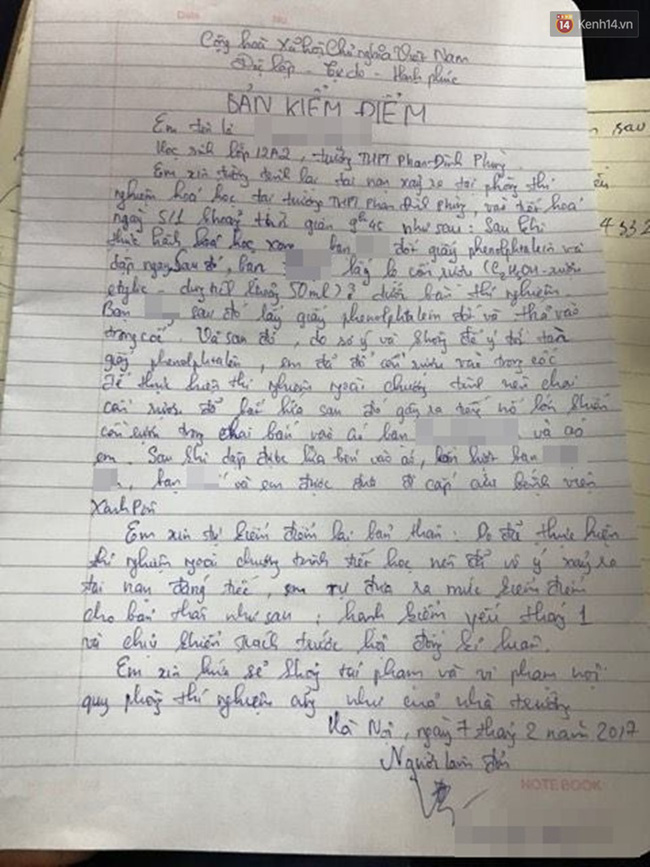 Kenh14.vn
Cộng hoà Xã hội Chủ nghĩa Việt Nam
Độc lập - Tự do - Hạnh phúc
BẢN KIỂM ĐIỂM
Em tên là
Học sinh lớp 12A2, trường THPT Phan Đình Phùng
Em xin tường trình lại tai nạn xảy ra tại phòng thí
nghiệm hoá học tại trường THPT Phan Đình Phùng, vào tiết hoá
ngày 5/1 khoảng thời gian 9h45 như sau: Sau khi
thực hành hoá học xong, bạn đốt giấy phenolphtalein và
dập ngay sau đó, bạn lấy lọ cồn rượu (C2H5OH - rượu
etylic - dung tích khoảng 50ml) ở dưới bàn thí nghiệm.
Bạn sau đó lấy giấy phenolphtalein đốt và thả vào
trong cốc. Và sau đó, do sơ ý và không để ý tới tàn
giấy phenolphtalein, em đã đổ cồn rượu vào trong cốc
để thực hiện thí nghiệm ngoài chương trình nên chai
cồn rượu đổ bắt lửa sau đó gây ra tiếng nổ lớn khiến
cồn rượu trong chai bắn vào áo bạn và áo
em. Sau khi dập được lửa bén vào áo, lần lượt bạn
bạn và em được đưa đi cấp cứu bệnh viện
Xanh Pôn
Em xin tự kiểm điểm lại bản thân: Do đã thực hiện
thí nghiệm ngoài chương trình tiết học nên đã vô ý xảy ra
tai nạn đáng tiếc, em tự đưa ra mức kiểm điểm
cho bản thân như sau: hạnh kiểm yếu tháng 1
và chịu khiển trách trước hội đồng kỉ luật.
Em xin hứa sẽ không tái phạm và vi phạm nội
quy phòng thí nghiệm cũng như của nhà trường
Hà Nội, ngày 7 tháng 2 năm 2017
Người làm đơn
NOTEBOOK